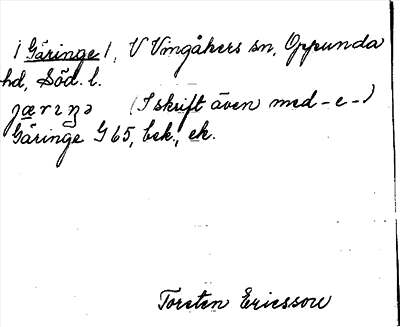 /Gäringe/, V Vingåkers sn, Oppunda
hd, Söd. l.
jærıŋə (I skrift även med -e-)
Gäringe G 65, bek., ek.
Torsten Ericsson